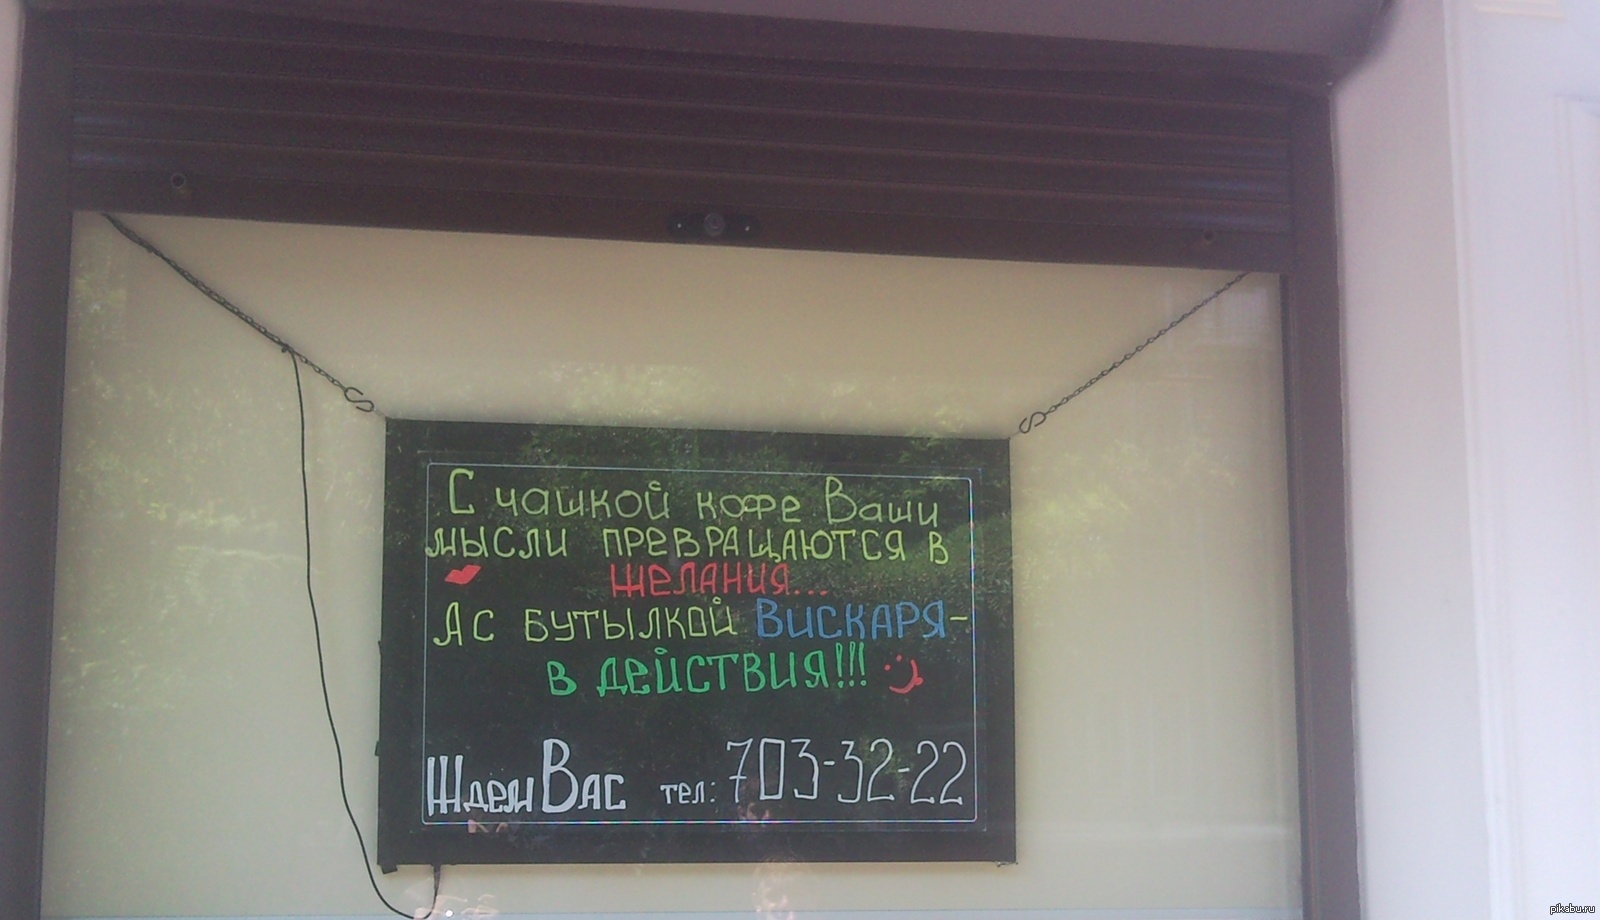 С чашкой кофе Ваши
мысли превращаются в
желания...
А с бутылкой Вискаря-
в действия!!!
Ждем Вас тел: 703-32-22
pikabu.ru